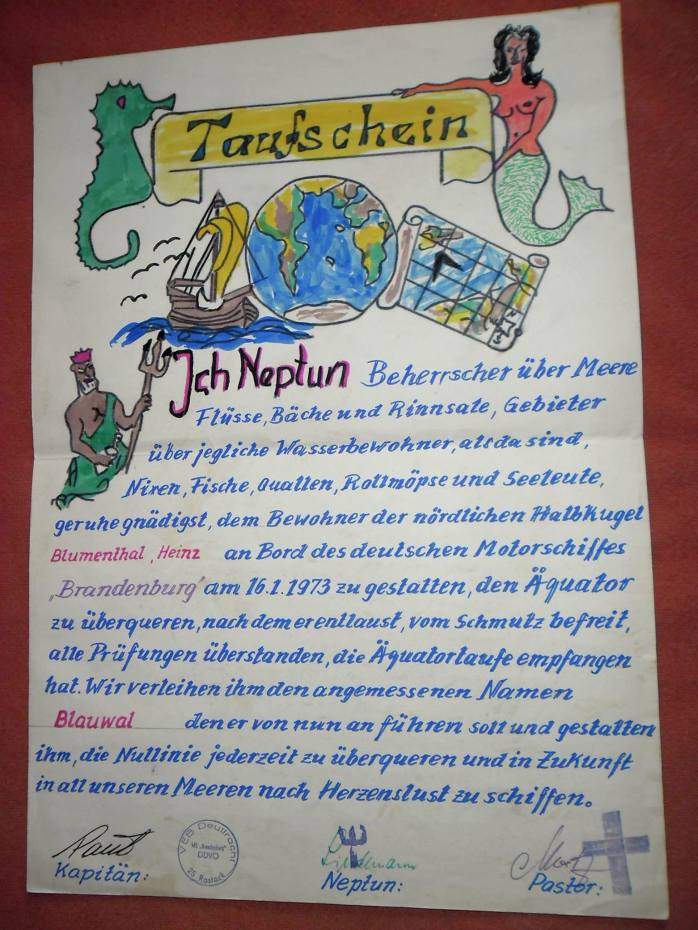 Taufschein
Ich Neptun Beherrscher über Meere
Flüsse, Bäche und Rinnsale, Gebieter
über jegliche Wasserbewohner, als da sind,
Nixen, Fische, Quallen, Rollmöpse und Seeleute,
geruhe gnädigst, dem Bewohner der nördlichen Halbkugel
Blumenthal, Heinz an Bord des deutschen Motorschiffes
"Brandenburg" am 16.1.1973 zu gestatten, den Äquator
zu überqueren, nach dem er entlaust, vom Schmutz befreit,
alle Prüfungen überstanden, die Äquatortaufe empfangen
hat. Wir verleihen ihm den angemessenen Namen
Blauwal den er von nun an führen soll und gestatten
ihm, die Nullinie jederzeit zu überqueren und in Zukunft
in all unseren Meeren nach Herzenslust zu schiffen.
VEB Deutfracht
MS "Brandenburg"
DDVD
25 Rostock
Kapitän: Neptun: Pastor: